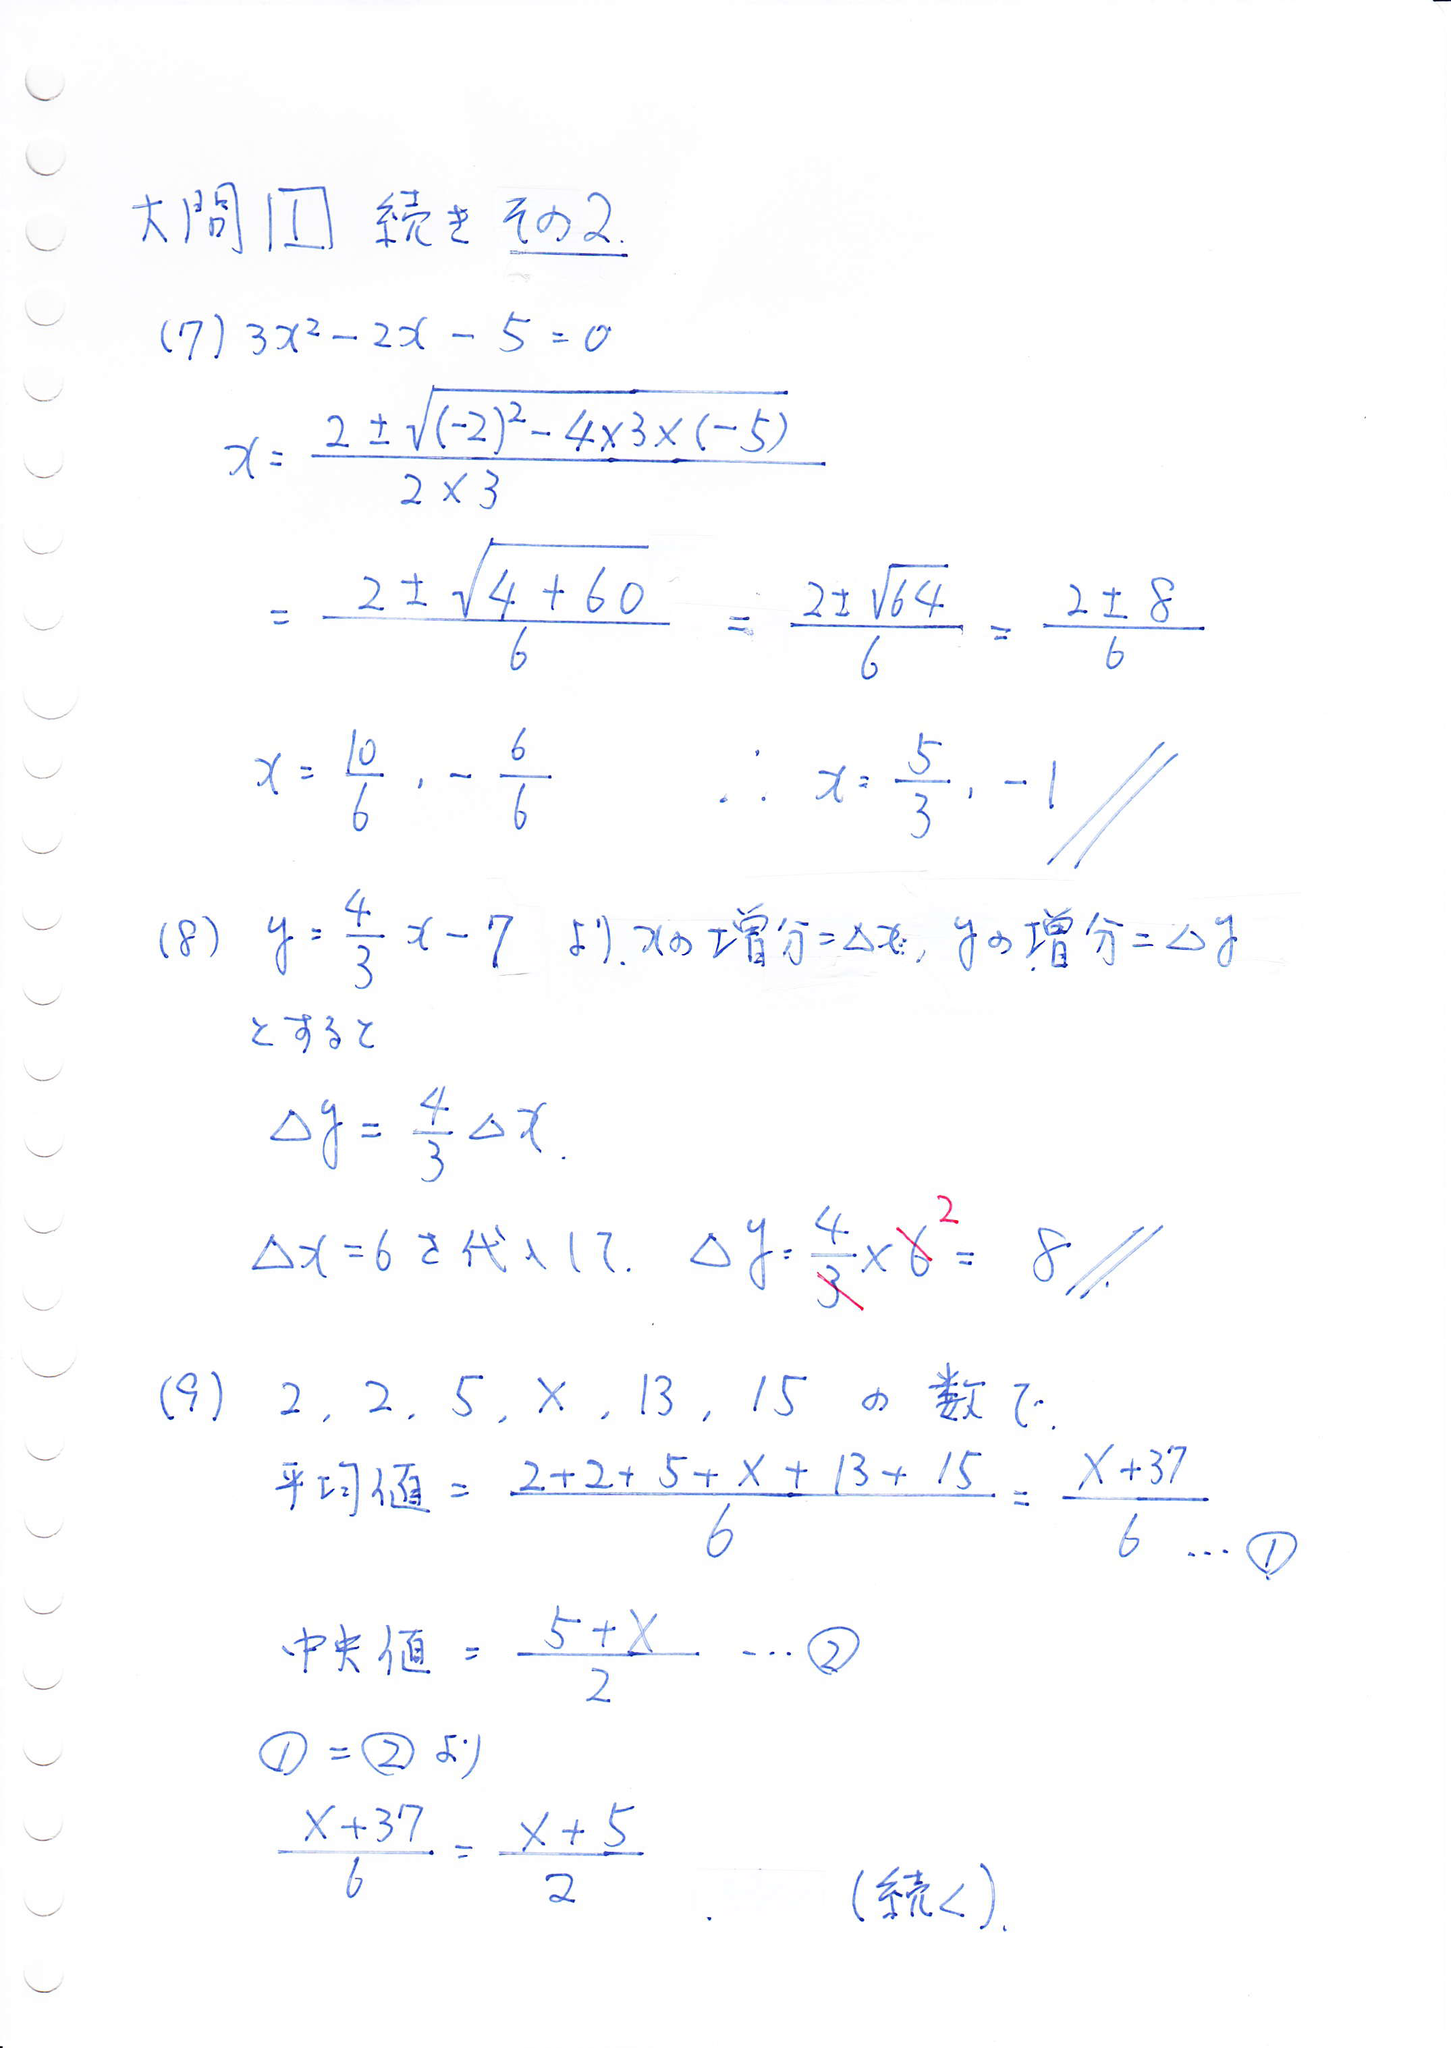 大問1 続き その2.
(7) 3x²-2x-5=0
x= (2±√((-2)²-4×3×(-5)))/(2×3)
= (2±√(4+60))/6 = (2±√64)/6 = (2±8)/6
x= 10/6, -6/6 ∴ x= 5/3, -1
(8) y= 4/3 x-7 より、xの増分=Δx, yの増分=Δy
とすると
Δy= 4/3 Δx.
Δx=6を代入して. Δy= 4/3 ×6 2 = 8
(9) 2, 2, 5, x, 13, 15 の数で.
平均値= (2+2+5+x+13+15)/6 = (x+37)/6 …①
中央値= (5+x)/2 …②
①=②より
(x+37)/6 = (x+5)/2 . (続く).